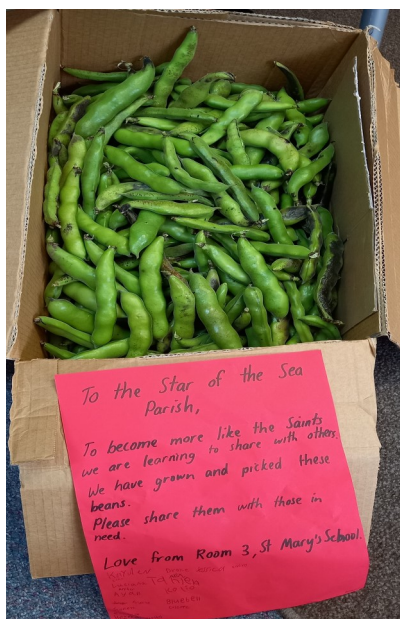 To the Star of the Sea
Parish,
To become more like the Saints
we are learning to share with others.
We have grown and picked these
beans.
Please share them with those in
need.
Love from Room 3, St Mary's School.